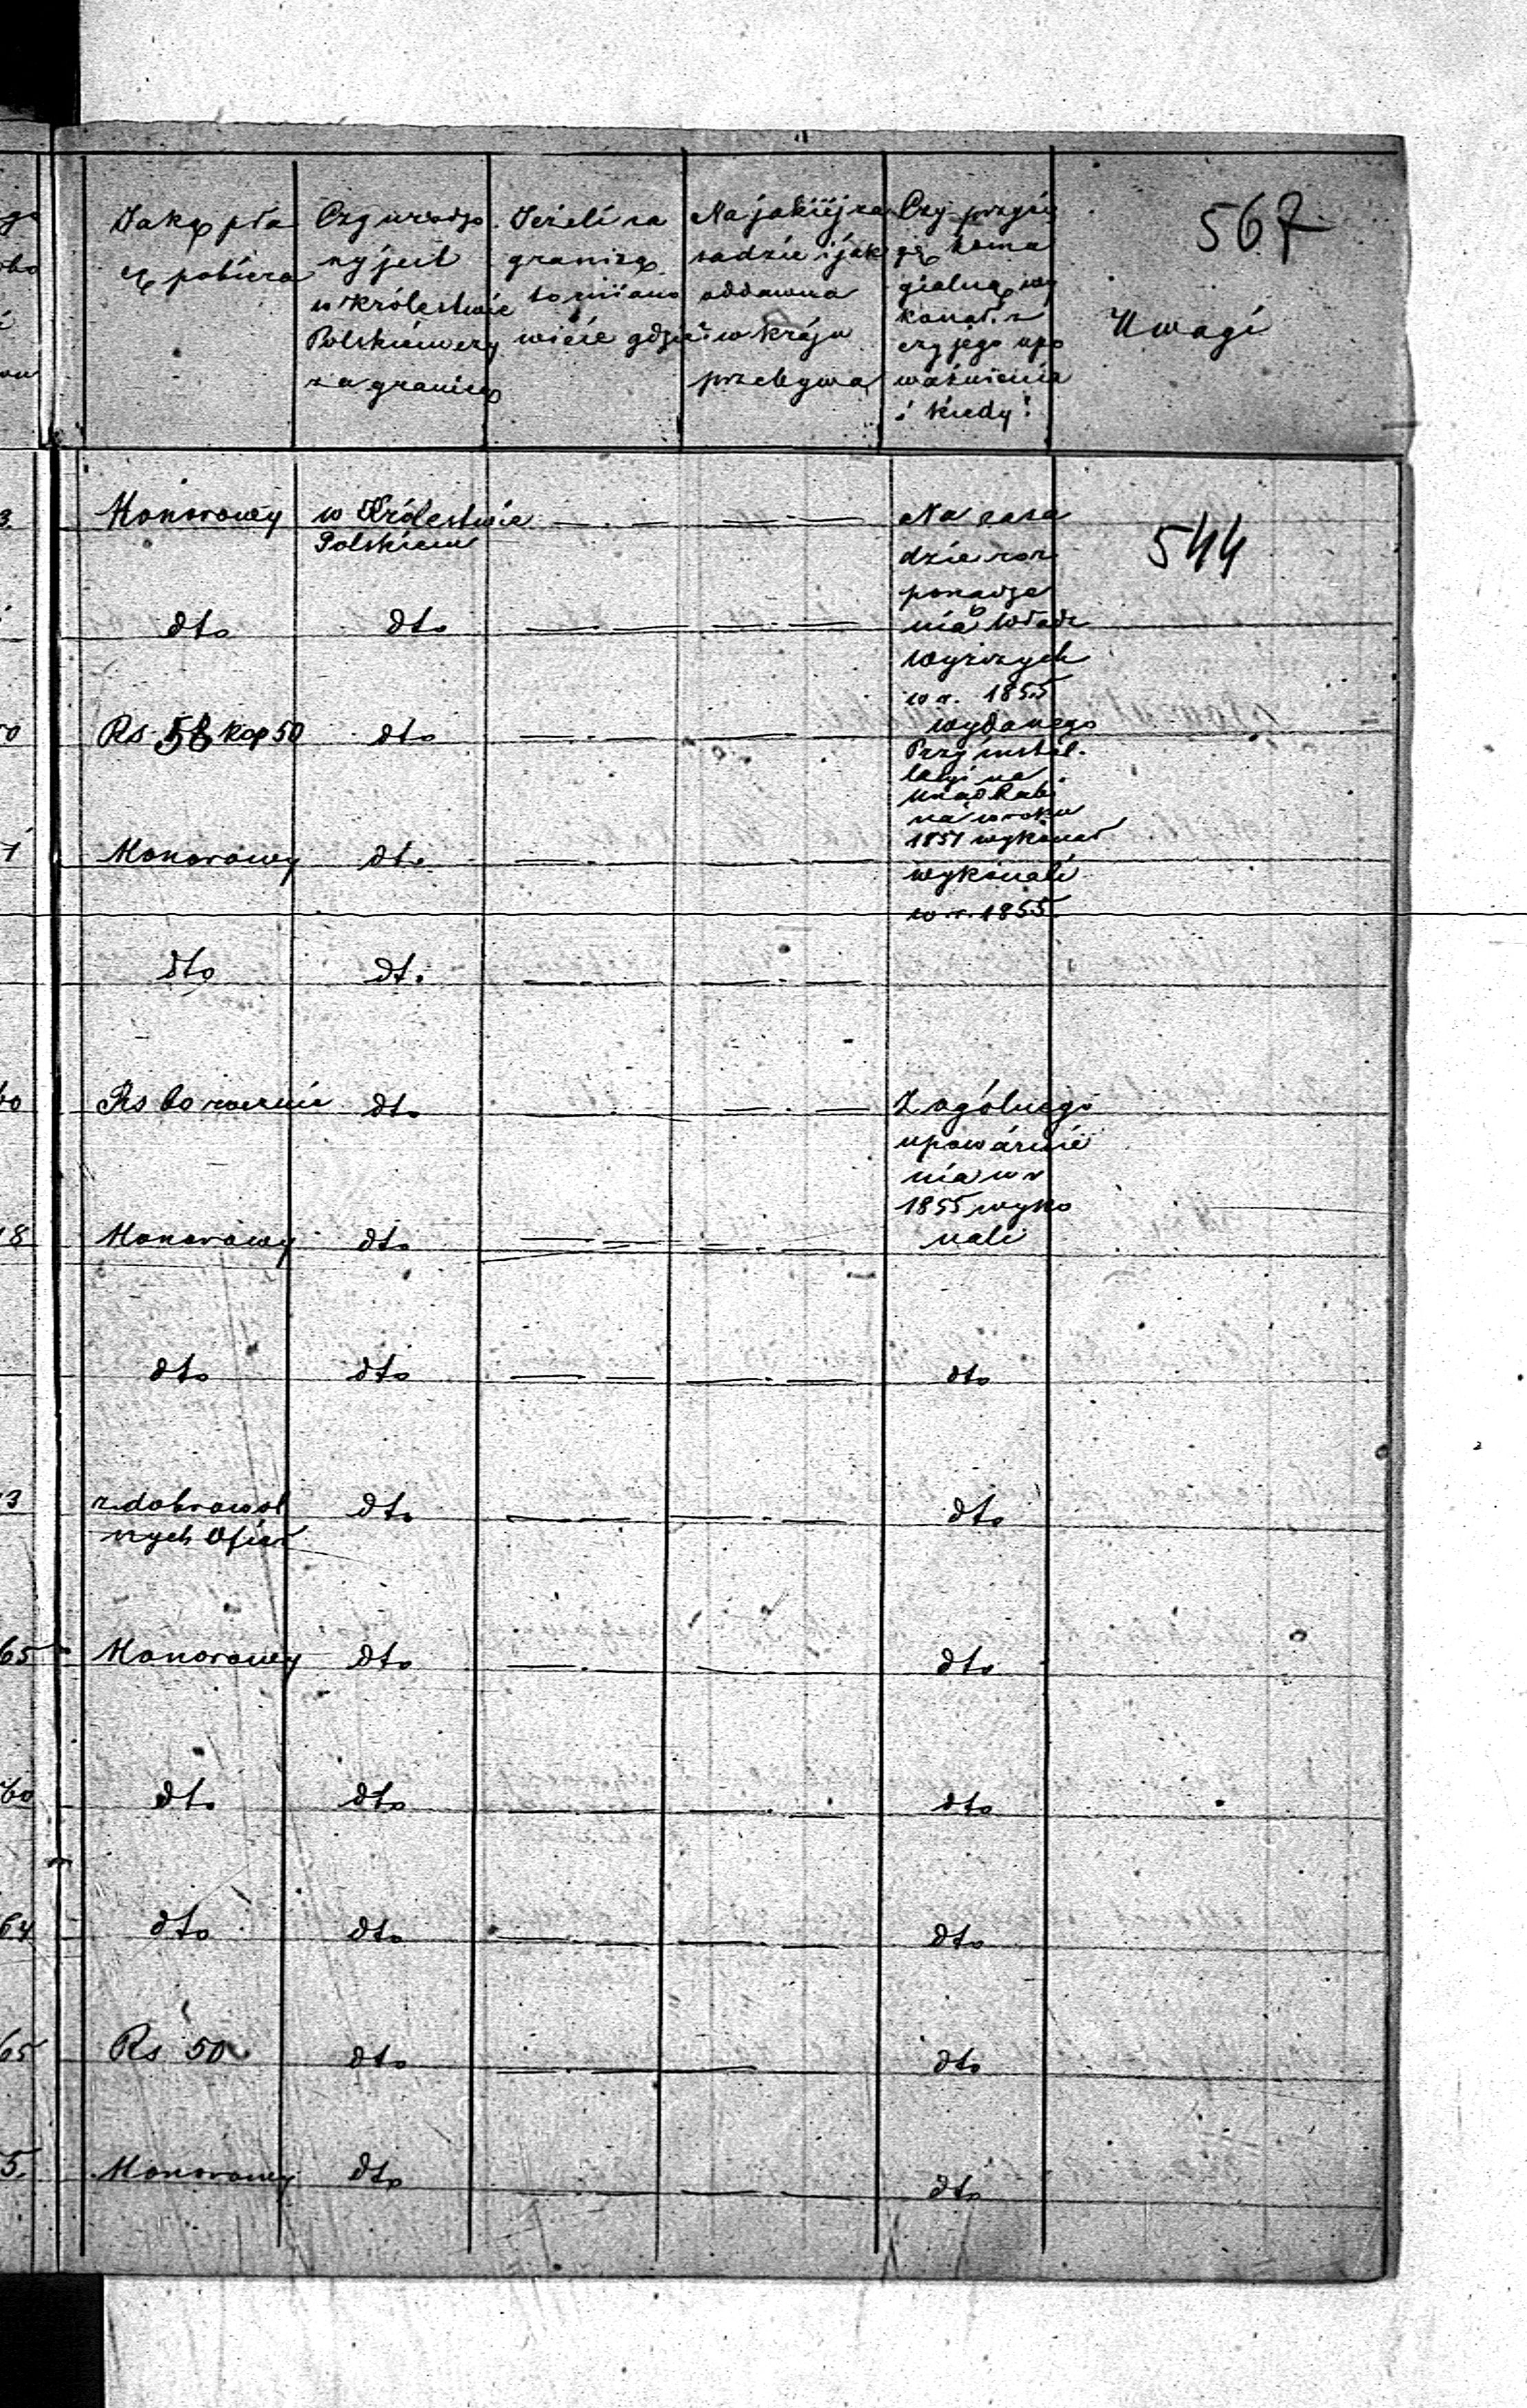 567
Jaką pła
cę pobiera
Czy urodzo
ny jest
w Królestwie
Polskiém czy
za granicą
Jeżeli za
granicą
to mianо
wicie gdzie
Na jakiéj za
sadzie i jak
oddawna
w kraju
przebywa
Czy przysię
gę homa
gialną wy
konał z
czyjego upo
ważnienia
i kiedy?
Uwagi
3. Honorowy w Królestwie
Polskiem
Na zasa
dzie roz
porządze
nia Władz
wyższych
w r. 1855
wydanego
544
dto dto
Rs. 58 kop 50 dto
Przy instal-
lacyi na
Rabi
na w roku
1851 wykonał
1 Honorowy dto
wykonali
w r. 1855.
dto dto
60 Rs 60 rocznie dto
Z ogólnego
upoważnie
nia w r
1855 wyko
nali
18 Honorowy dto
dto dto dto
13 z dobrowol
nych Ofiar dto dto
65 Honorowy dto dto
60 dto dto dto
64 dto dto dto
65 Rs 50 dto dto
5. Honorowy dto dto